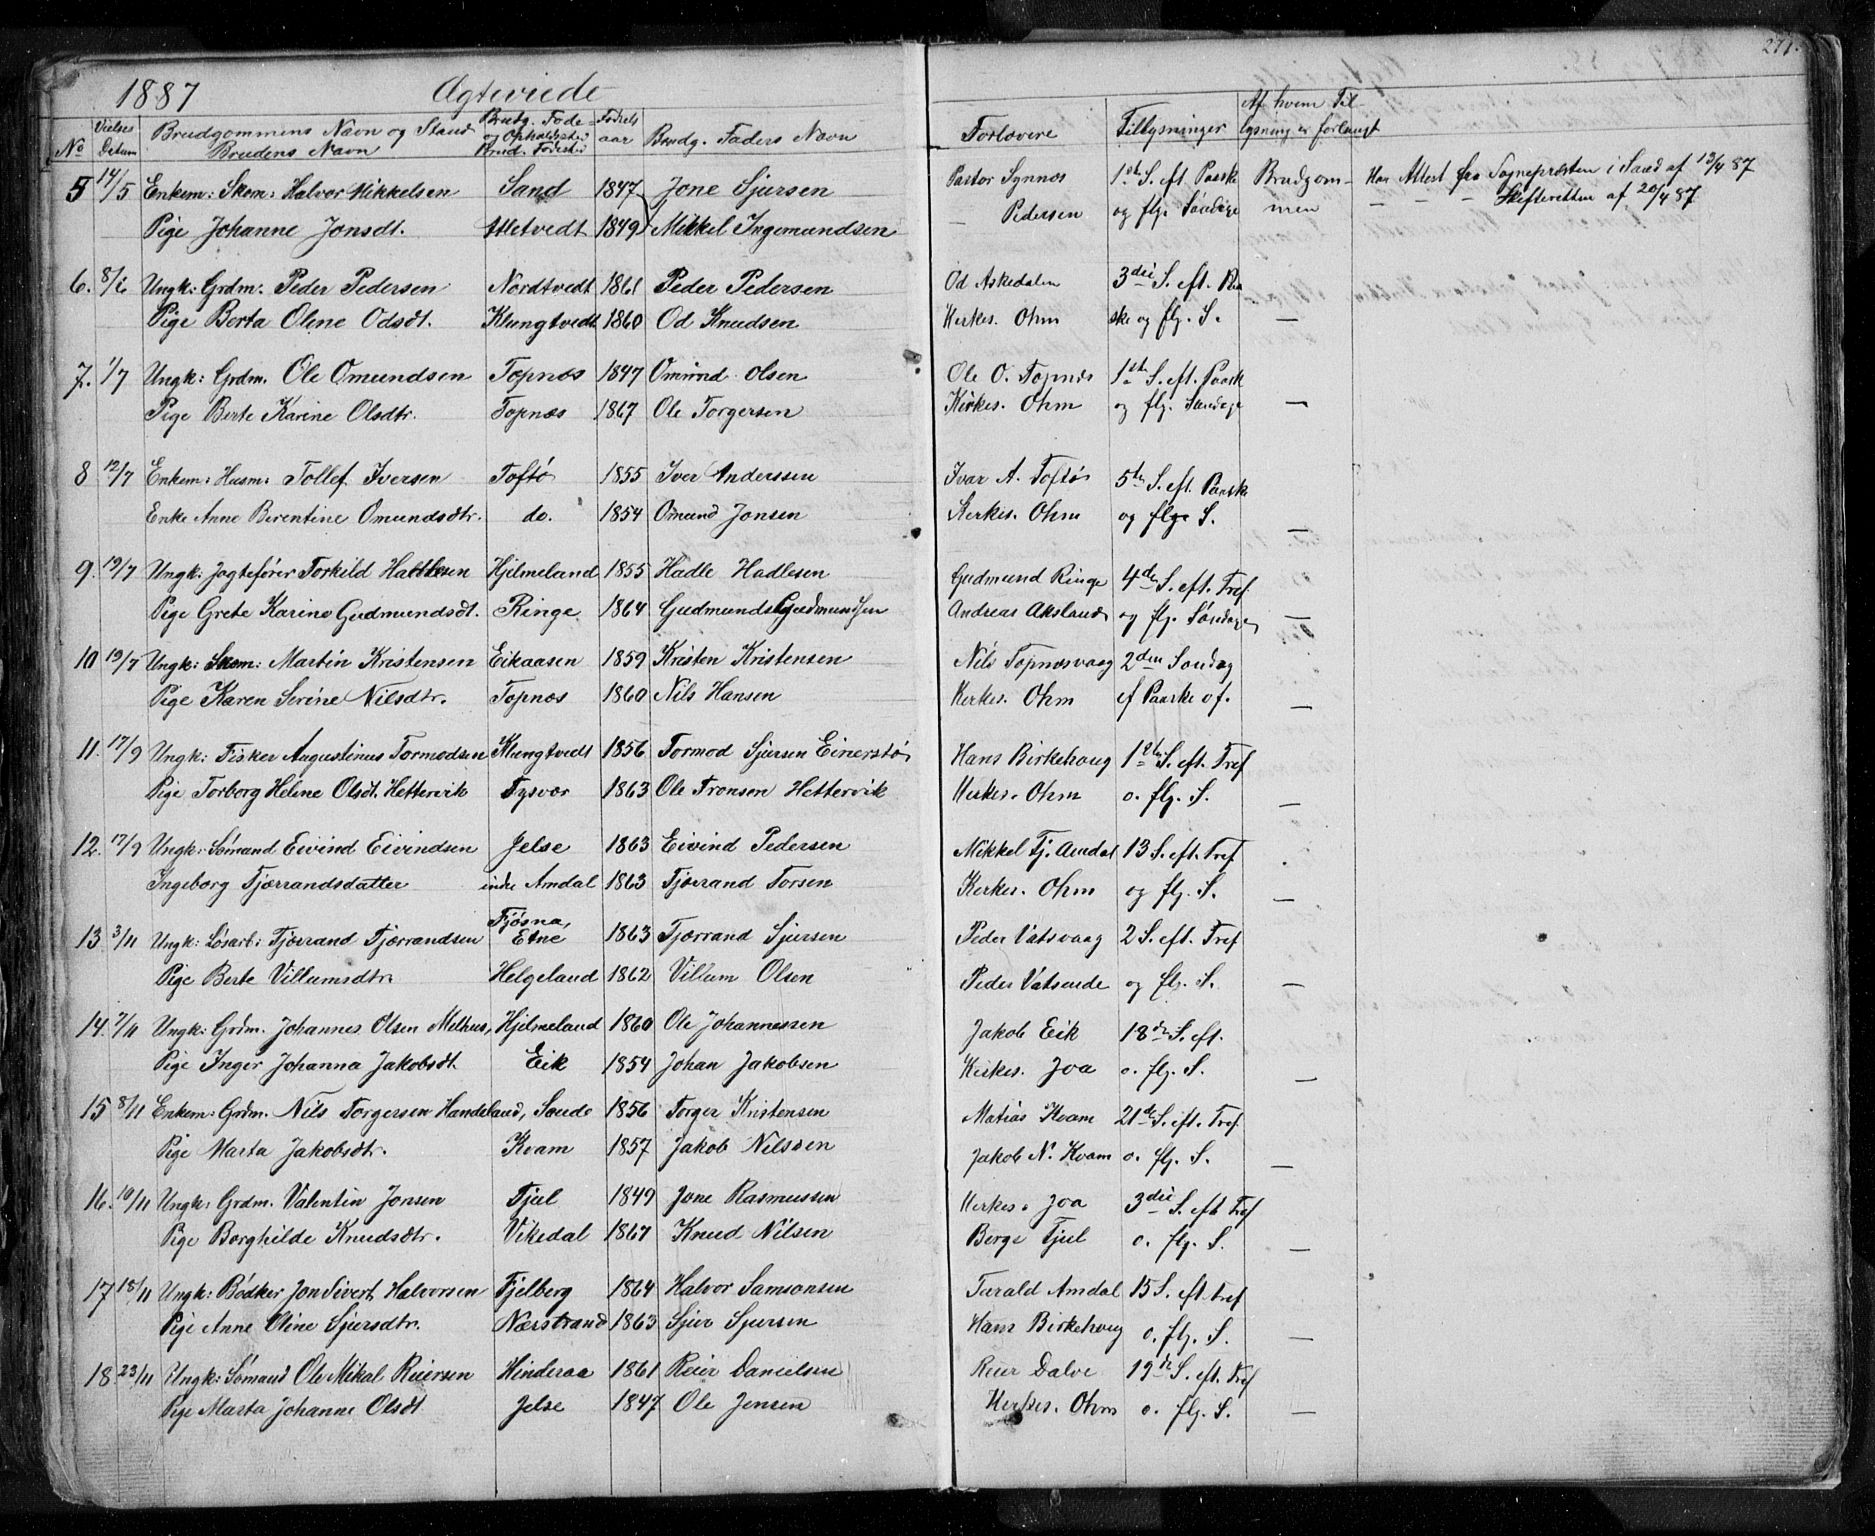 271.
1887 Ægteviede
No Vielses Datum Brudgommens Navn og Stand Brudens Navn Brudg. Føde- og Opholdssted Brud. Fødested Fødsels aar Brudg. Faders Navn Forlovere Tillysninger Af hvem Tillysning er forlangt
5 14/5 Enkem: Skom: Halvor Mikkelsen Sand 1847 Jone Sjursen Pastor Synnes 1ste S. eft Paaske Brudgom- Har Attest fra Sognepresten i Sand af 13/4 87
Pige Johanne Jonsdt. Attetvedt 1849 Mikkel Ingemundsen — Pedersen og flg. Søndage men — — — Skifteretten af 20/4 87
6. 8/6 Ungk: Grdm. Peder Pedersen Nordtvedt 1861 Peder Pedersen Od Askedalen 3die S. eft. Paa
Pige Berta Oline Odsdt. Klungtvedt 1860 Od Knudsen Kirkes. Ohm ske og flg. S. —
7. 1/7 Ungk: Grdm. Ole Omundsen Topnøs 1847 Omund Olsen Ole O. Topnæs 1ste S. eft. Paask
Pige Berte Karine Olsdtr. Topnæs 1867 Ole Torgersen Kirkes. Ohm og flg. Søndage —
8 12/7 Enkem: Husm: Tollef Iversen Toftø 1855 Iver Anderssen Ivar A. Toftø 5te S. eft. Paask
Enke Anne Berentine Omundsdtr. do. 1854 Omund Jonsen Kirkes. Ohm og flge S. —
9. 19/7 Ungk. Jagtefører Torkild Hadlesen Hjelmeland 1855 Hadle Hadlesen Gudmund Ringe 4de S. eft. Tref.
Pige Grete Karine Gudmundsdt. Ringe 1864 Gudmund Gudmundsen Andreas Aksland og flg. Søndage —
10 19/7 Ungk: Skom: Martin Kristensen Eikaasen 1859 Kristen Kristensen Nils Topnæsvaag 2den Søndag
Pige Karen Serine Nilsdtr. Topnæs 1860 Nils Hansen Kirkes. Ohm ef Paaske o f. —
11. 17/9 Ungk: Fisker Augustinus Tormodsen Klungtvedt 1856 Tormod Sjursen Einerstø Hans Birkehoug 1ste S. eft. Tref
Pige Torborg Helene Olsdt. Hettervik Tysvær 1863 Ole Tronsen Hettervik Kirkes. Ohm o. flg. S. —
12. 17/9 Ungk: Sømand Eivind Eivindsen Jelse 1863 Eivind Pedersen Mikkel Tj. Amdal 13 S. eft. Tref
Ingeborg Tjærandsdatter indre Amdal 1863 Tjærand Torsen Kirkes. Ohm og flg. S. —
13 3/11 Ungk: Løsarb: Tjærrand Tjærrandsen Fjøsna, Etne 1863 Tjærrand Sjursen Peder Vatsvaag 2 S. eft. Tref
Pige Berte Villumsdtr. Helgeland 1862 Villum Olsen Peder Vatsende og flg. S. —
14. 7/11 Ungk: Grdm. Johannes Olsen Melhus, Hjelmeland 1860 Ole Johannessen Jakob Eik 18de S. eft.
Pige Inger Johanna Jakobsdt. Eik 1854 Johan Jakobsen Kirkes. Joa o. flg. S. —
15 8/11 Enkem: Grdm. Nils Torgersen Handeland, Soude 1856 Torger Kristensen Matias Kvam 21de S. eft. Tref.
Pige Marta Jakobsdtr. Kvam 1857 Jakob Nilssen Jakob N. Kvam o. flg. S. —
16. 10/11 Ungk: Grdm. Valentin Jonsen Tjul 1849 Jone Rasmussen Kirkes. Joa 3die S. eft Tref
Pige Borghilde Knudsdtr. Vikedal 1867 Knud Nilsen Berge Tjul o. flg. S. —
17 18/11 Ungk: Bødker Jon Sivert Halvorsen Fjelberg 1864 Halvor Samsonsen Tarald Amdal 15 S. eft. Tref
Pige Anne Oline Sjursdtr. Nærstrand 1863 Sjur Sjursen Hans Birkehoug o. flg. S. —
18 23/11 Ungk: Sømand Ole Mikal Reiersen Hinderaa 1861 Reier Danielsen Reier Dalve 19de S. eft. Tref
Pige Marta Johanne Olsdt Jelse 1847 Ole Jensen Kirkes. Ohm o. flg. S. —